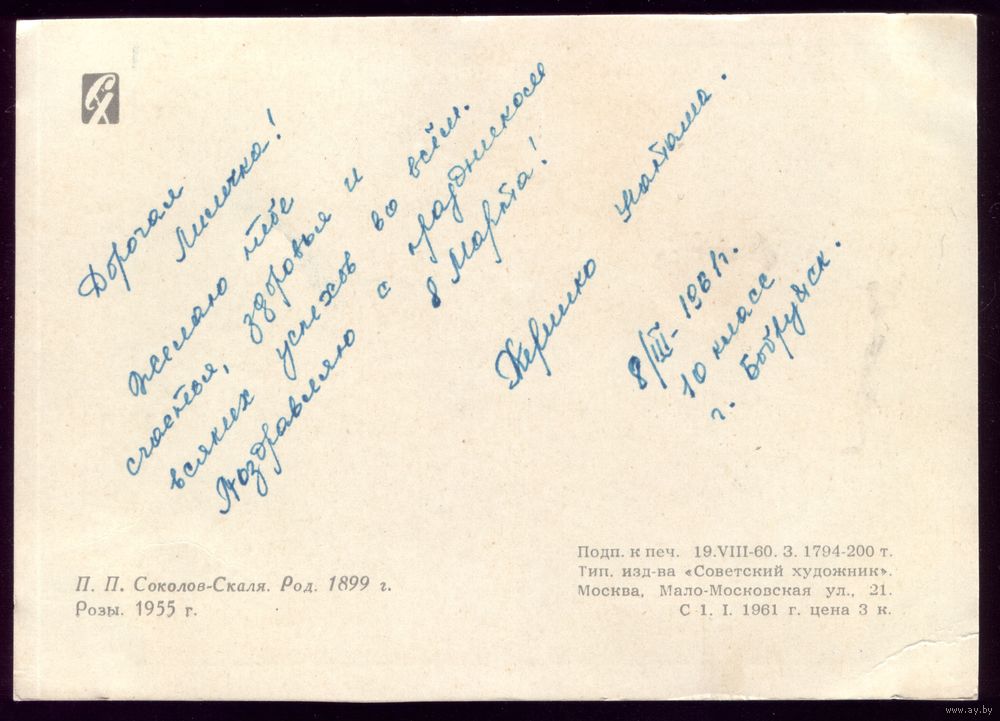 СХ
Дорогая
Лилечка!
Желаю тебе
счастья, здоровья и
всяких успехов во всём.
Поздравляю с праздником
8 Марта!
Наташа.
8/III- 1961г.
10 класс
г. Бобруйск.
П. П. Соколов-Скаля. Род. 1899 г.
Розы. 1955 г.
Подп. к печ. 19.VIII-60. З. 1794-200 т.
Тип. изд-ва «Советский художник».
Москва, Мало-Московская ул., 21.
С 1. I. 1961 г. цена 3 к.
www.ay.by